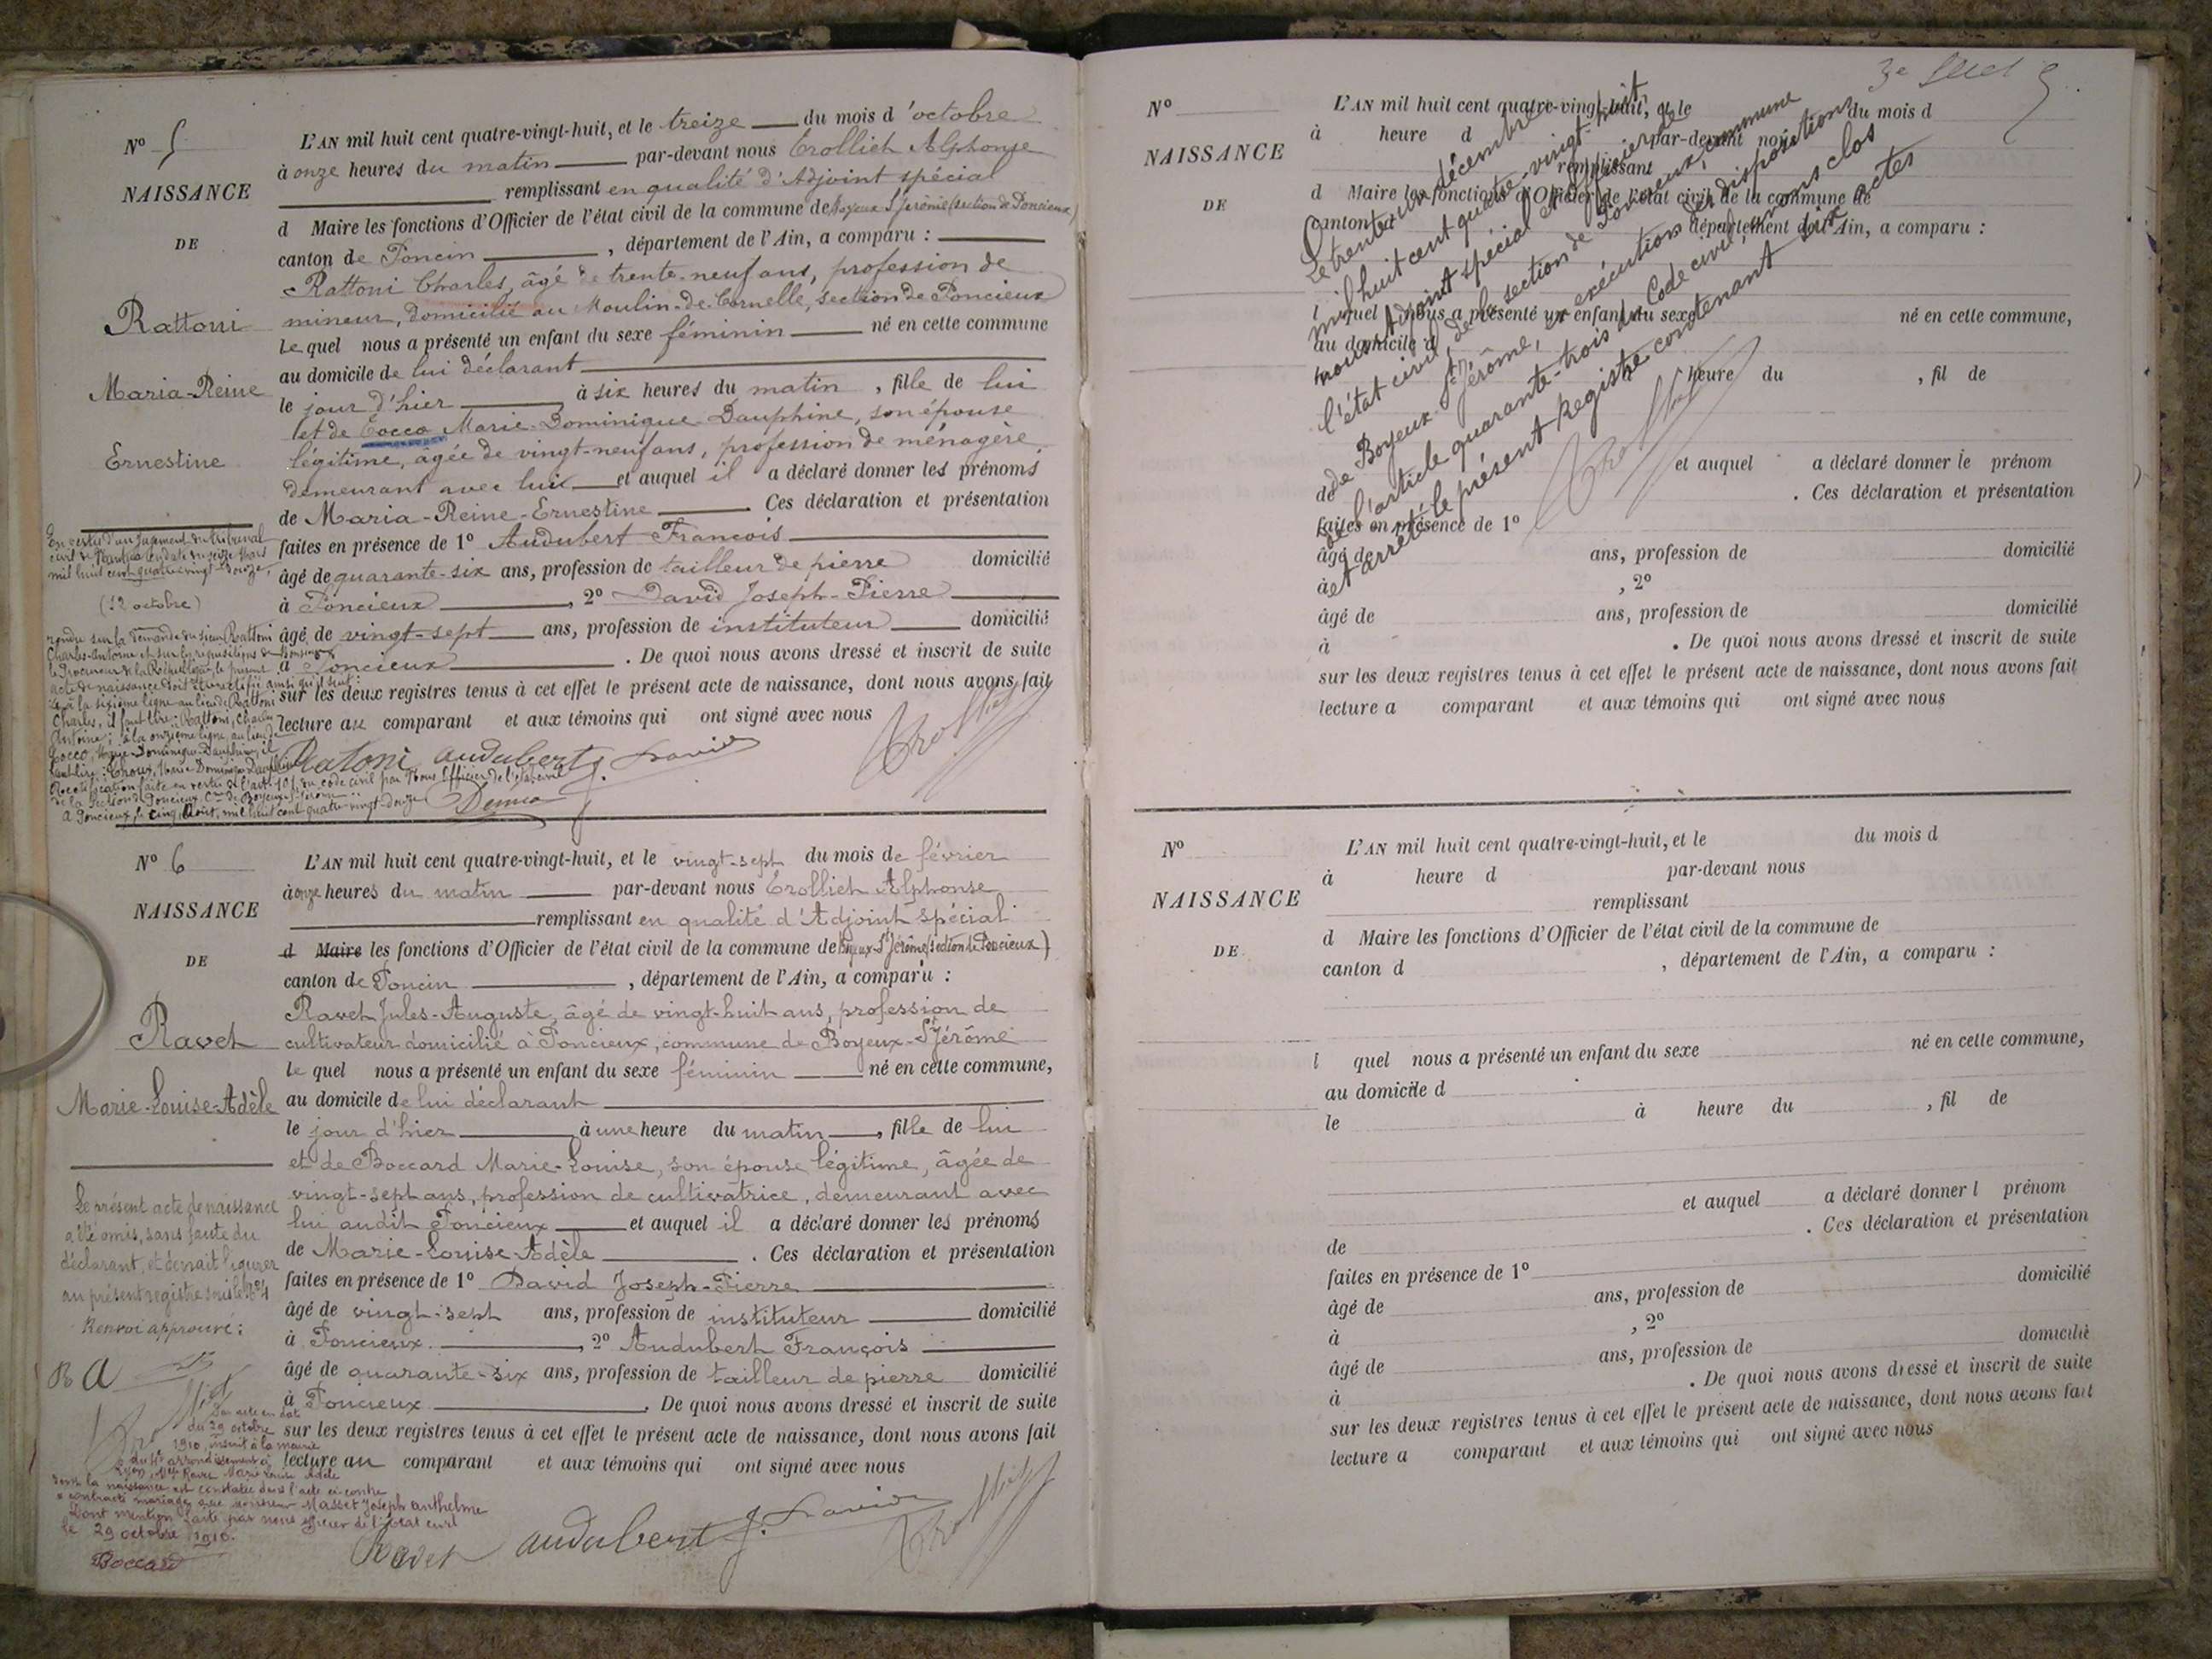 N° 5
NAISSANCE
DE
Rattoni
Maria-Reine
Ernestine
L'AN mil huit cent quatre-vingt-huit, et le treize du mois d'octobre
à onze heures du matin par-devant nous Trolliet Alphonse
remplissant en qualité d'Adjoint spécial
d Maire les fonctions d'Officier de l'état civil de la commune de Boyeux-St Jérôme (section de Poncieux)
canton de Poncin, département de l'Ain, a comparu :
Rattoni Charles, âgé de trente-neuf ans, profession de
mineur, domicilié au Moulin-de-Cornelle, section de Poncieux
lequel nous a présenté un enfant du sexe féminin né en cette commune
au domicile de lui déclarant
le jour d'hier à six heures du matin, fille de lui
et de Cocco Marie-Dominique-Dauphine, son épouse
légitime, âgée de vingt-neuf ans, profession de ménagère
demeurant avec lui et auquel il a déclaré donner les prénoms
de Maria-Reine-Ernestine Ces déclaration et présentation
faites en présence de 1° Audubert François
âgé de quarante-six ans, profession de tailleur de pierre domicilié
à Poncieux, 2° David Joseph-Pierre
âgé de vingt-sept ans, profession de instituteur domicilié
à Poncieux. De quoi nous avons dressé et inscrit de suite
sur les deux registres tenus à cet effet le présent acte de naissance, dont nous avons fait
lecture au comparant et aux témoins qui ont signé avec nous
Ratoni audubert J. David Trolliet
En vertu d'un jugement du tribunal
civil de Nantua en date du seize Mars
mil huit cent quatre-vingt-douze,
(12 octobre)
rendu sur la demande du sieur Rattoni
Charles-Antoine et sur les réquisitions de Monsieur
le Procureur de la République, le présent
acte de naissance doit être rectifié ainsi qu'il suit :
à la sixième ligne au lieu de Rattoni
Charles, il faut lire : Rattoni, Charles
Antoine ; à la onzième ligne, au lieu de
Cocco, Marie-Dominique-Dauphine, il
faut lire : Marie Dominique Dauphine
Rectification faite en vertu de l'art. 101 du code civil par Nous Officier de l'état civil
de la Section de Poncieux Cne de Boyeux-St-Jérôme
A Poncieux, le cinq Août, mil huit cent quatre-vingt-douze
N° 6
NAISSANCE
DE
Ravet
Marie-Louise-Adèle
L'AN mil huit cent quatre-vingt-huit, et le vingt-sept du mois de février
à onze heures du matin par-devant nous Trolliet Alphonse
remplissant en qualité d'Adjoint spécial
d Maire les fonctions d'Officier de l'état civil de la commune de Boyeux-St Jérôme (section de Poncieux)
canton de Poncin, département de l'Ain, a comparu :
Ravet Jules-Auguste, âgé de vingt-huit ans, profession de
cultivateur domicilié à Poncieux, commune de Boyeux-St Jérôme
lequel nous a présenté un enfant du sexe féminin né en cette commune,
au domicile de lui déclarant
le jour d'hier à une heure du matin, fille de lui
et de Boccard Marie-Louise, son épouse légitime, âgée de
vingt-sept ans, profession de cultivatrice, demeurant avec
lui audit Poncieux et auquel il a déclaré donner les prénoms
de Marie-Louise-Adèle. Ces déclaration et présentation
faites en présence de 1° David Joseph-Pierre
âgé de vingt-sept ans, profession de instituteur domicilié
à Poncieux, 2° Audubert François
âgé de quarante-six ans, profession de tailleur de pierre domicilié
à Poncieux. De quoi nous avons dressé et inscrit de suite
sur les deux registres tenus à cet effet le présent acte de naissance, dont nous avons fait
lecture au comparant et aux témoins qui ont signé avec nous
Ravet audubert J. David Trolliet
Le présent acte de naissance
a été omis, sans faute du
déclarant, et devrait figurer
au présent registre sous le N° 4
Renvoi approuvé :
R A
Trolliet
Par acte en date
du 29 octobre
1910, inscrit à la mairie
du 4e arrondissement à
Lyon, Melle Ravet Marie Louise Adèle
dont la naissance est constatée dans l'acte ci-contre
a contracté mariage avec monsieur Masset Joseph anthelme
Dont mention faite par nous officier de l'état civil
le 29 octobre 1910.
Boccard
N°
NAISSANCE
DE
L'AN mil huit cent quatre-vingt-huit, et le du mois d
à heure d par-devant nous
remplissant
d Maire les fonctions d'Officier de l'état civil de la commune de
canton d département de l'Ain, a comparu :
l quel nous a présenté un enfant du sexe né en cette commune,
au domicile d
heure du , fil de
et auquel a déclaré donner le prénom
de . Ces déclaration et présentation
faites en présence de 1°
âgé de ans, profession de domicilié
à , 2°
âgé de ans, profession de domicilié
à . De quoi nous avons dressé et inscrit de suite
sur les deux registres tenus à cet effet le présent acte de naissance, dont nous avons fait
lecture a comparant et aux témoins qui ont signé avec nous
Le trente un décembre
mil huit cent quatre-vingt-huit
nous Adjoint spécial Officier de
l'état civil, de la section de Poncieux, commune
de Boyeux-St-Jérôme, en exécution des dispositions
de l'article quarante-trois du Code civil, avons clos
et arrêté le présent Registre contenant six actes
Trolliet
N°
NAISSANCE
DE
L'AN mil huit cent quatre-vingt-huit, et le du mois d
à heure d par-devant nous
remplissant
d Maire les fonctions d'Officier de l'état civil de la commune de
canton d , département de l'Ain, a comparu :
l quel nous a présenté un enfant du sexe né en cette commune,
au domicile d
le à heure du , fil de
et auquel a déclaré donner l prénom
de . Ces déclaration et présentation
faites en présence de 1°
âgé de ans, profession de domicilié
à , 2°
âgé de ans, profession de domicilié
à . De quoi nous avons dressé et inscrit de suite
sur les deux registres tenus à cet effet le présent acte de naissance, dont nous avons fait
lecture a comparant et aux témoins qui ont signé avec nous